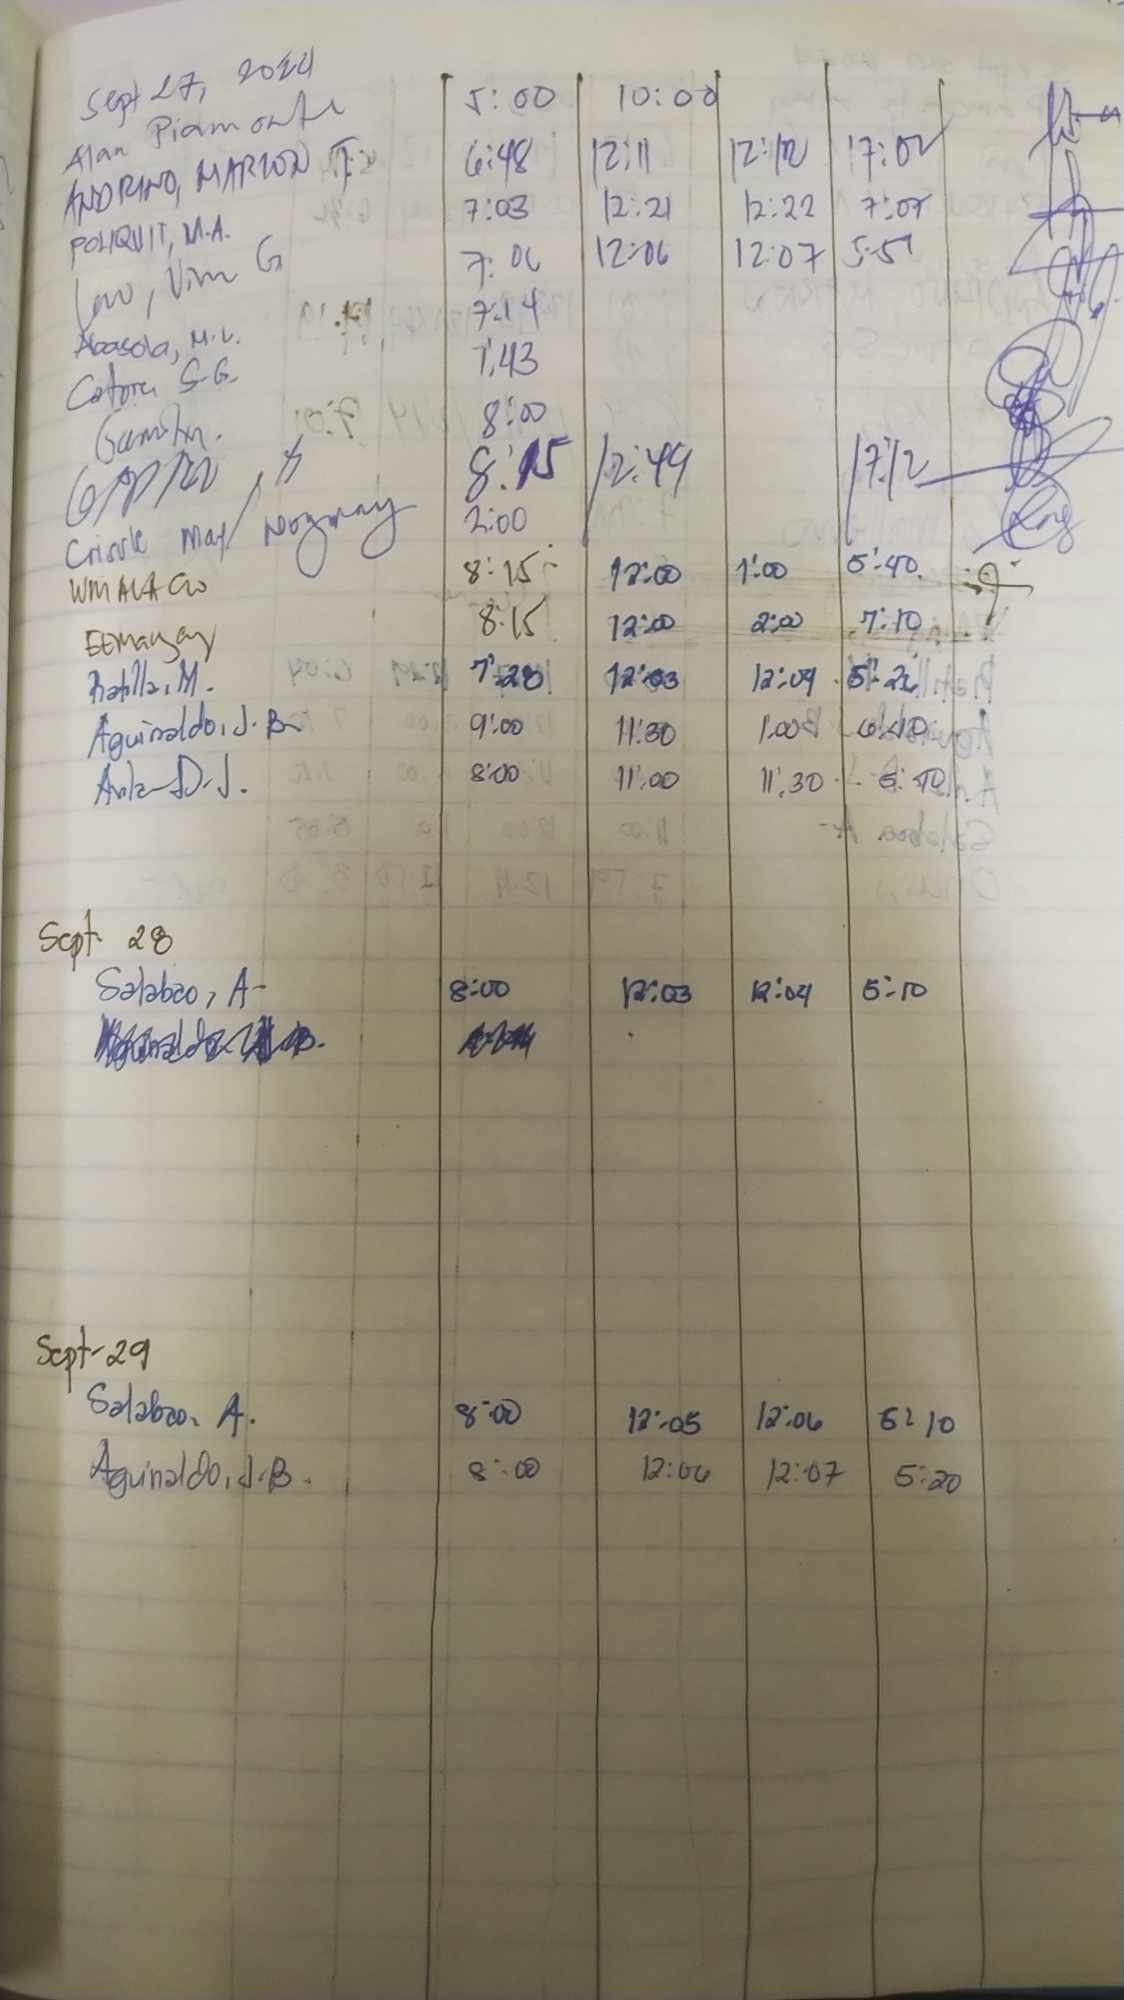 Sept 27, 2024
Alan Piamonte 5:00 10:00
ANDRINO, MARLON T. 6:48 12:11 12:12 17:02
POLIQUIT, M.A. 7:03 12:21 12:22 7:07
Leno, Vim G 7:06 12:06 12:07 5:51
Abasola, M.L. 7:14
Catora S.G. 7:43
8:00
8:15 12:49 17:12
Crisvle May Nogmay 2:00
WMALACO 8:15 12:00 1:00 5:40
EEmangay 8:15 12:00 2:00 7:10
Ratilla, M. 7:28 12:03 12:04 5:26
Aguinaldo, J.B. 9:00 11:30 1:00 6:10
D.J. 8:00 11:00 11:30 5:40
Sept 28
Salabao, A- 8:00 12:03 12:04 5:10
Sept-29
Salabao, A. 8:00 12:05 12:06 5:10
Aguinaldo, J.B. 8:00 12:06 12:07 5:20